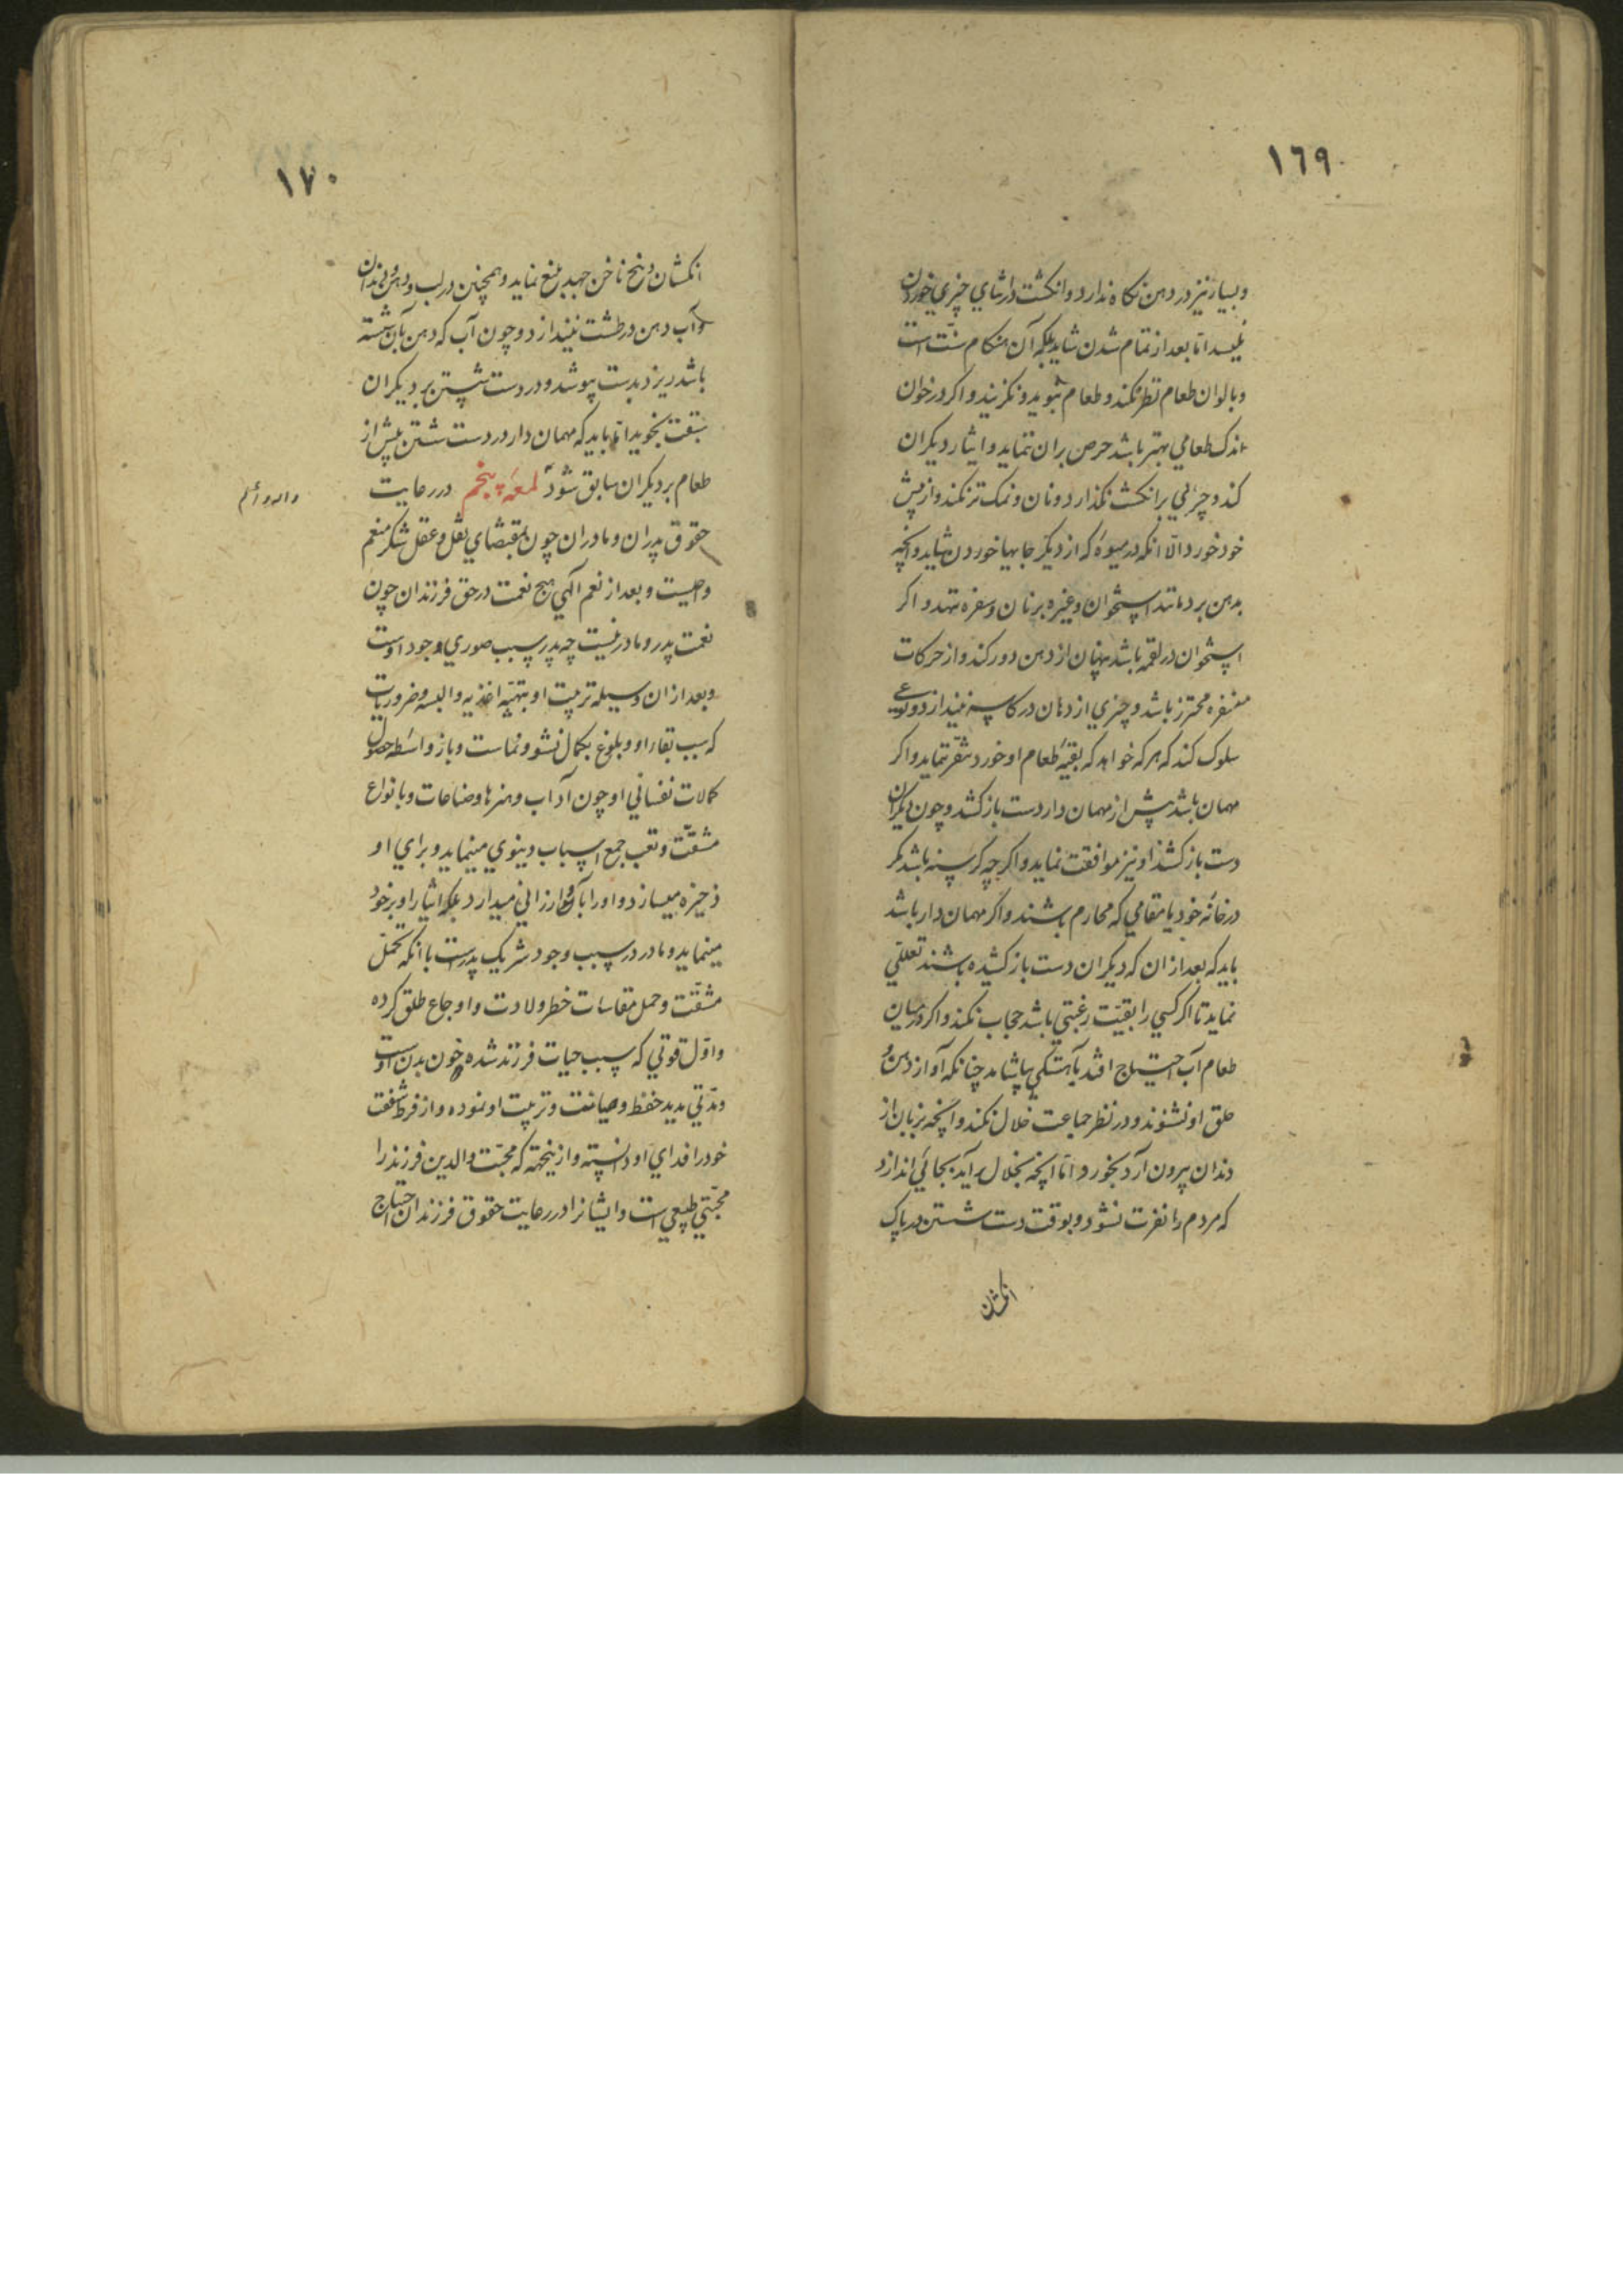 ١٦٩
و بسیار نیز در دهن نکاه ندارد و انکشت در اثنای چیزی خوردن
نلیسد اتا بعد از تمام شدن شاید بلکه آن هنکام سنّت است
و بالوان طعام نظر نکند و طعام نبوید و نکزیند و اکر در خوان
اندک طعامی بهتر باشد حرص بران ننماید و ایثار دیکران
کند و چربی بر انکشت نکذارد و نان و نمک تر نکند و از پیش
خود خورد الّا انکه در میوهٔ که از دیکر جایها خوردن شاید و آنچه
بدهن برد مانند استخوان و غیره بر نان و سفره ننهد و اکر
استخوان در لقمه باشد پنهان از دهن دور کند و از حرکات
منفره محترز باشد و چیزی از دهان در کاسه نیندازد و نوعی
سلوک کند که هر که خواهد که بقیّهٔ طعام او خورد تنفّر ننماید و اکر
مهمان باشد پیش از مهمان دار دست باز کشد و چون دیکران
دست باز کشند او نیز موافقت نماید و اکر چه کرسنه باشد مکر
در خانهٔ خود یا مقامی که محارم باشند و اکر مهمان دار باشد
باید که بعد از ان که دیکران دست باز کشیده باشند تعللّی
نماید تا اکر کسی را بقیّت رغبتی باشد حجاب نکند و اکر در میان
طعام آب احتیاج افتد بآهستکی بیاشامد چنانکه آواز دهن و
حلق او نشنوند و در نظر جماعت خلال نکند و آنچه بزبان از
دندان بیرون آرد بخورد اتا انچه بخلال برآید بجائی اندازد
که مردم را نفرت نشود و بوقت دست شستن در پاک
انکشتان
١٧٠
انکشتان و بیخ ناخن جهد بلیغ نماید و همچنین در لب و دهن و دندان
و آب دهن در طشت نیندازد و چون آب که دهن بآن شسته
باشد ریزد بدست بپوشد و در دست شستن بر دیکران
سبقت نجوید اتا باید که مهمان دار در دست شستن پیش از
طعام بر دیکران سابق شود لمعهٔ پنجم در رعایت
حقوق پدران و مادران چون بمقتضای نقل و عقل شکر منعم
واجبست و بعد از نعم الهی هیچ نعمت در حق فرزندان چون
نعمت پدر و مادر نیست چه پدر سبب صوری وجود اوست
و بعد از ان وسیله تربیت او بتهیّه اغذیه و البسه و ضروریات
که سبب بقاء او و بلوغ بکمال نشو و نماست و باز واسطه حصول
کمالات نفسانی او چون آداب و هنرها و صناعات و بانواع
مشقّت و تعب جمع اسباب دنیوی مینماید و برای او
ذخیره میسازد و او را بآن ارزانی میدارد بلکه ایثار او بر خود
مینماید و مادر در سبب وجود شریک پدرست با انکه تحمّل
مشقّت و حمل مقاسات خطر ولادت و اوجاع طلق کرده
و اوّل قوتی که سبب حیات فرزند شده خون بدن اوست
و مدّتی مدید حفظ و صیانت و تربیت او نموده و از فرط شفقت
خود را فدای او دانسته و ازینجهته که محبّت والدین فرزند را
محبّتی طبیعی است و ایشانرا در رعایت حقوق فرزندان احتیاج